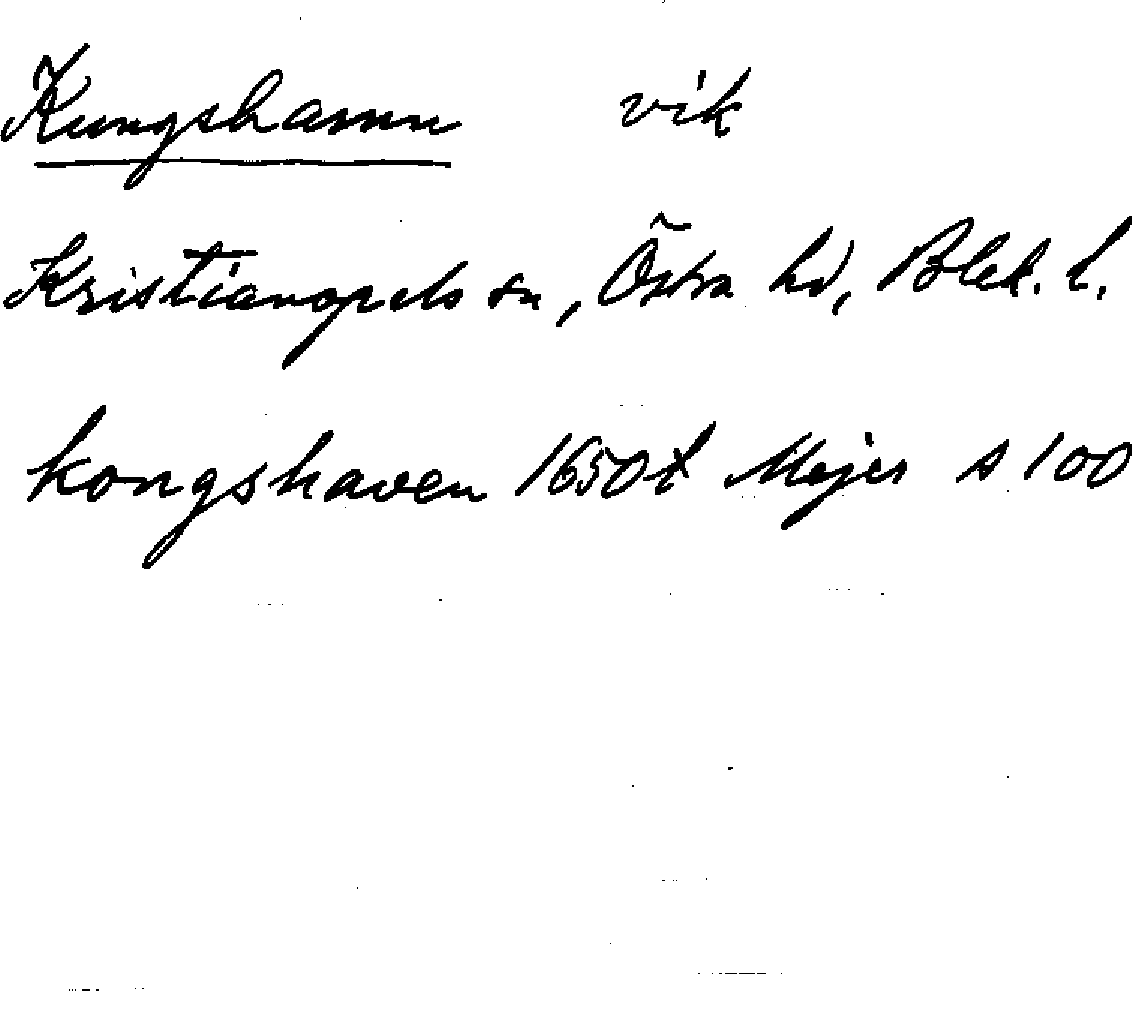 Kungshamn vik
Kristianopels sn, Östra hd, Blek. l.
kongshaven 1650t Mejer s 100